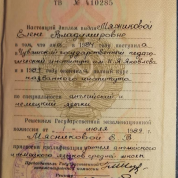 ТВ № 410285
Настоящий диплом выдан Мясниковой
Елене Владимировне
в том, что она в 1984 году поступила
в
государственный педагогический
институт им.
и в 1989 году окончила полный курс
названного института
по специальности английский и
немецкий языки
Решением Государственной экзаменационной
комиссии от июля 1989 г.
Мясниковой Е. В.
присвоена квалификация учителя английского
и немецкого языков средней школы